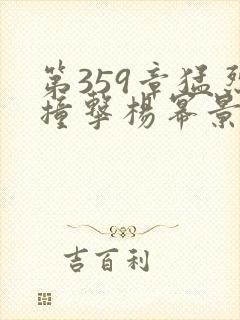 第359章猛烈
撞擊楊冪景
吉百利